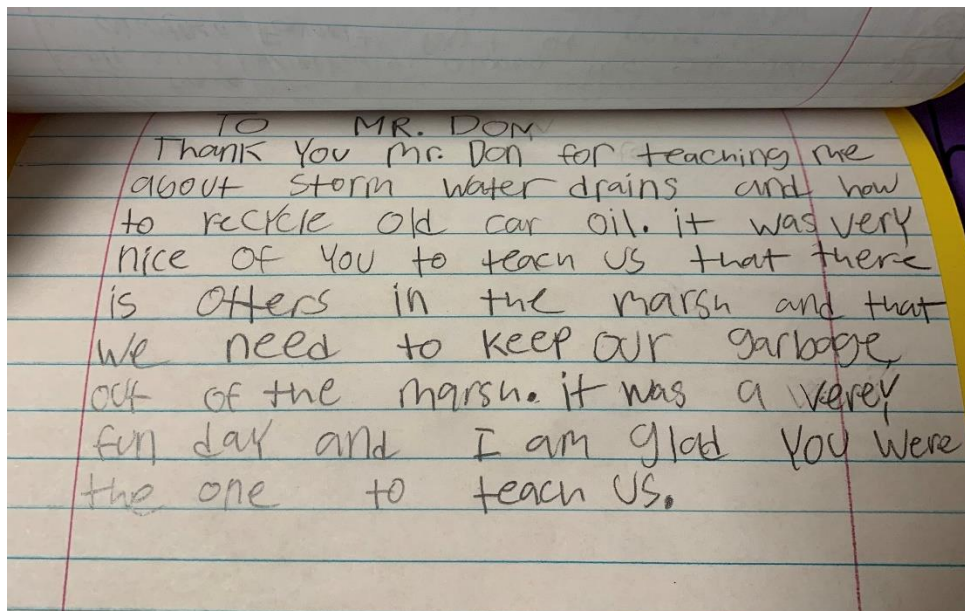 TO MR. DON
Thank You Mr. Don for teaching me
about storm water drains and how
to recycle old car oil. it was very
nice of You to teach us that there
is otters in the marsh and that
we need to keep our garbage
out of the marsh. it was a verey
fun day and I am glad you were
the one to teach us.